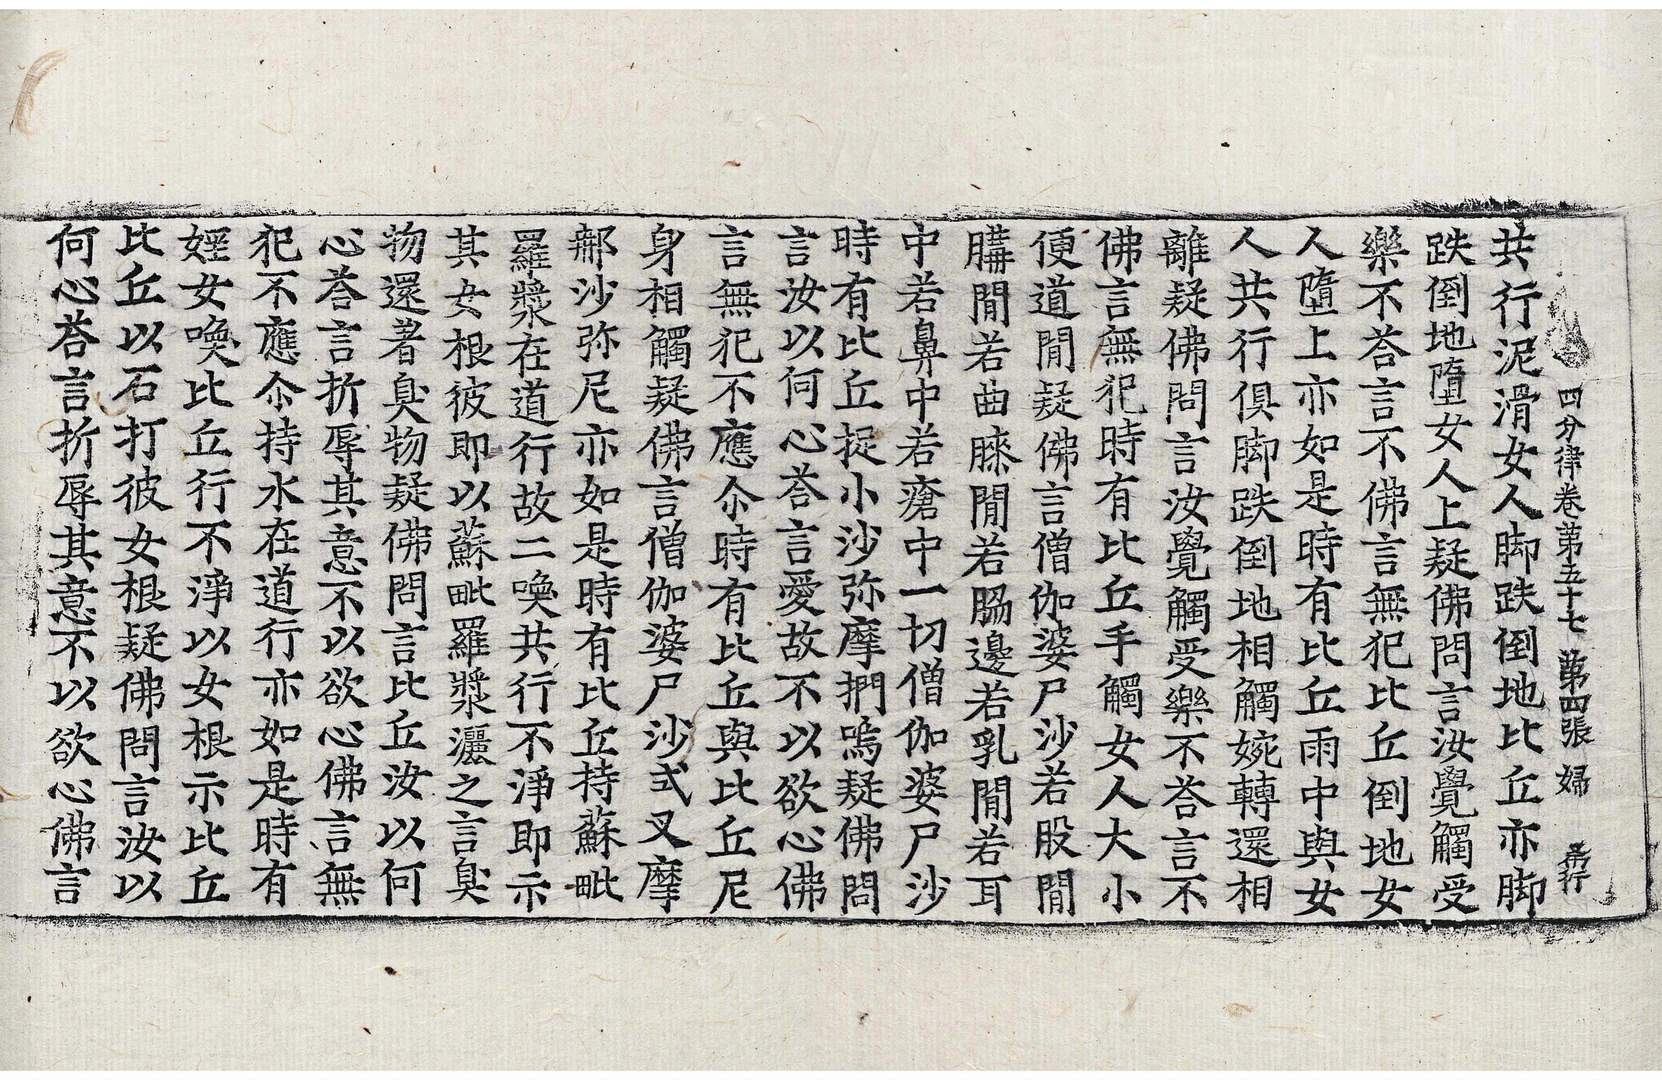 四分律卷第五十七 第四張 婦
共行泥滑女人脚跌倒地比丘亦脚
跌倒地墮女人上疑佛問言汝覺觸受
樂不荅言不佛言無犯比丘倒地女
人墮上亦如是時有比丘雨中與女
人共行俱脚跌倒地相觸婉轉還相
離疑佛問言汝覺觸受樂不荅言不
佛言無犯時有比丘手觸女人大小
便道閒疑佛言僧伽婆尸沙若股閒
膞閒若曲膝閒若脇邊若乳閒若耳
中若鼻中若瘡中一切僧伽婆尸沙
時有比丘捉小沙弥摩捫嗚疑佛問
言汝以何心荅言愛故不以欲心佛
言無犯不應尒時有比丘與比丘尼
身相觸疑佛言僧伽婆尸沙式叉摩
那沙弥尼亦如是時有比丘持蘇毗
羅漿在道行故二喚共行不淨即示
其女根彼即以蘇毗羅漿灑之言臭
物還著臭物疑佛問言比丘汝以何
心荅言折辱其意不以欲心佛言無
犯不應尒持水在道行亦如是時有
婬女喚比丘行不淨以女根示比丘
比丘以石打彼女根疑佛問言汝以
何心荅言折辱其意不以欲心佛言